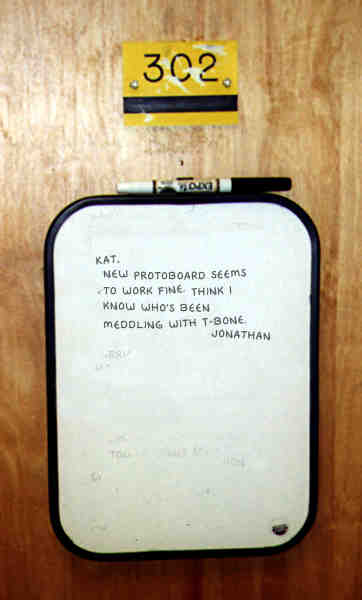 302
EXPO
KAT.
NEW PROTOBOARD SEEMS
TO WORK FINE. THINK I
KNOW WHO'S BEEN
MEDDLING WITH T-BONE.
JONATHAN